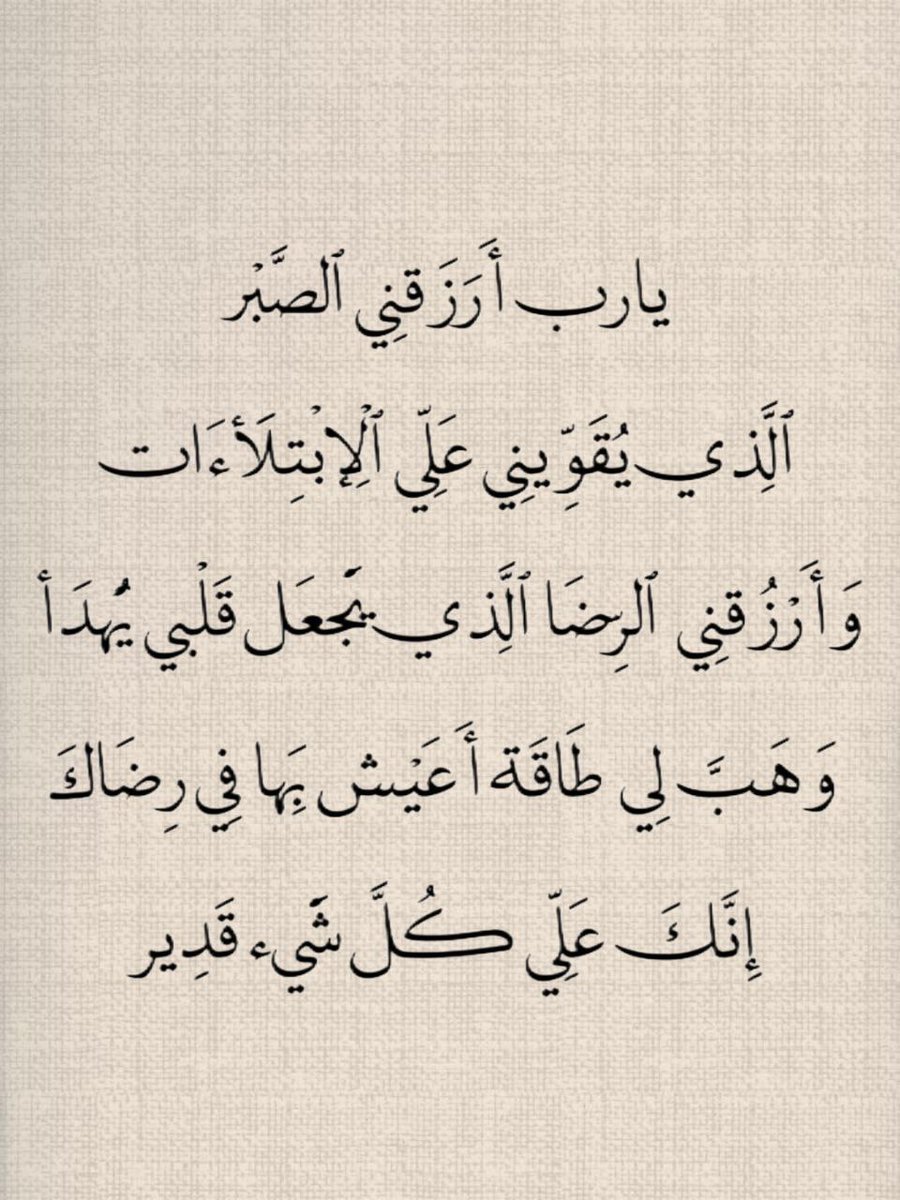 يارب أَرَزَقنِي ٱلصَّبْر
ٱلَّذِي يُقَوِّينِي عَلِّي ٱلْإِبْتِلَأءَات
وَأَرْزُقنِي ٱلرِضَا ٱلَّذِي يَّجعَل قَلْبي يُّهدَأ
وَهَبَّ لِي طَاقَة أَعَيْش بِهَا فِي رِضَاكَ
إِنَّكَ عَلِّي كُلَّ شَّيء قَدِير